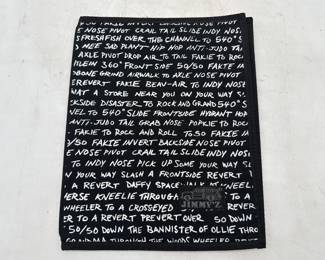 50 FAKIE INVERT BACKSIDE NOSE PIVOT
E NOSE PIVOT CRAIL TAIL SLIDE INDY NOSE
FRESHFISH OVER THE CHANNEL TO 540°S
MEE SAD PLANT HIP HOP ANTI-JUDO TA
AXLE PIVOT DROP AIR TO TAIL FAKIE TO ROCK
ILEIN 360° FRONT SIDE 50/50 FAKIE IN
BONE GRIND AIRWALK TO AXLE NOSE PIVOT
REVERT FAKIE BEAN-AIR TO INDY NOSE
WAY A STORE NEAR YOU ON YOUR WAY
KSIDE DISASTER TO ROCK AND GRAND 540°S
VEL TO 540° SLIDE FRONTSIDE HYDRANT HOP
ANTI-JUDO TAIL GRAB NOSE POPKIE TO ROCK
- FAKIE TO ROCK AND ROLL TO 50 FAKIE IN
/50 FAKIE INVERT BACKSIDE NOSE PIVOT
E NOSE PIVOT CRAIL TAIL SLIDE INDY NOSE
TO INDY NOSE PICK UP SOME YOUR WAY
N YOUR WAY SLASH A FRONTSIDE REVERT
A REVERT DAFFY SPACE WALK AT KNEEL
ERSE KNEELIE THROUGH
JIMMY'Z
WHEELER TO A CROSSEYED TO A REVER
ER TO A REVERT PREVERT OVER 50 DOWN
50/50 DOWN THE BANNISTER OF OLLIE THRO
GRANDMA THROUGH THE WOODS WHEELER